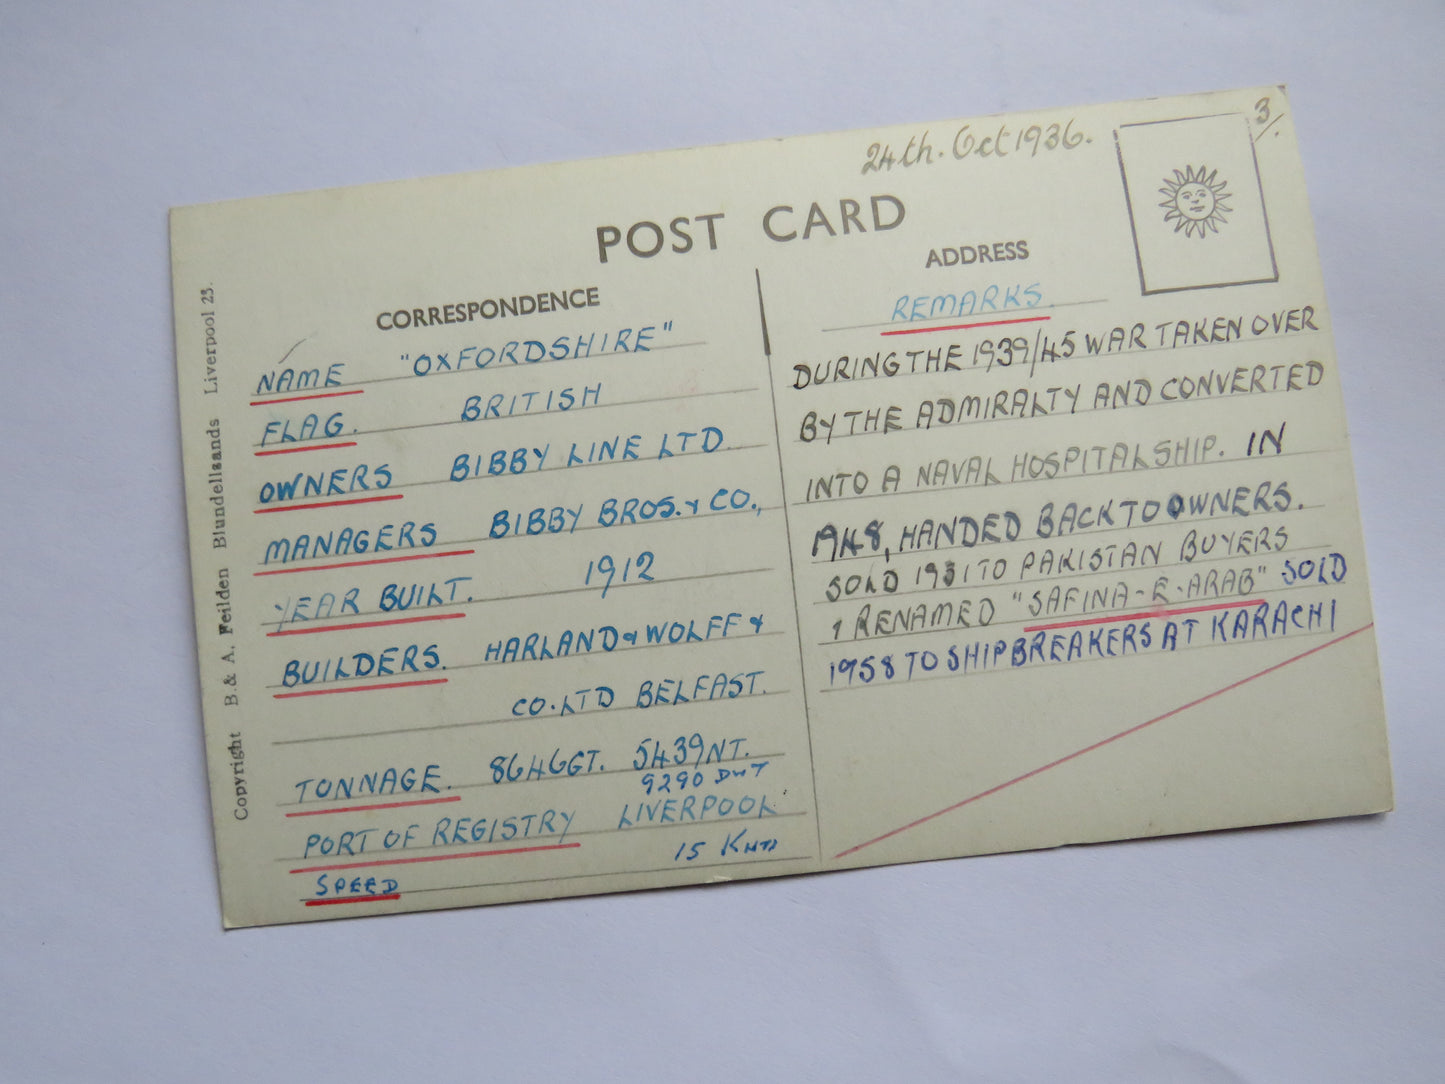 24th. Oct 1936.
3/.
POST CARD
CORRESPONDENCE
NAME "OXFORDSHIRE"
FLAG. BRITISH
OWNERS BIBBY LINE LTD.
MANAGERS BIBBY BROS. & CO.,
YEAR BUILT. 1912
BUILDERS. HARLAND & WOLFF &
CO. LTD BELFAST.
TONNAGE. 8646GT. 5439NT.
9290 DWT
PORT OF REGISTRY LIVERPOOL
SPEED 15 Knts
ADDRESS
REMARKS.
DURING THE 1939/45 WAR TAKEN OVER
BY THE ADMIRALTY AND CONVERTED
INTO A NAVAL HOSPITAL SHIP. IN
1948, HANDED BACK TO OWNERS.
SOLD 1951 TO PAKISTAN BUYERS
& RENAMED "SAFINA-E-ARAB" SOLD
1958 TO SHIPBREAKERS AT KARACHI
Copyright B. & A. Feilden Blundellsands Liverpool 23.